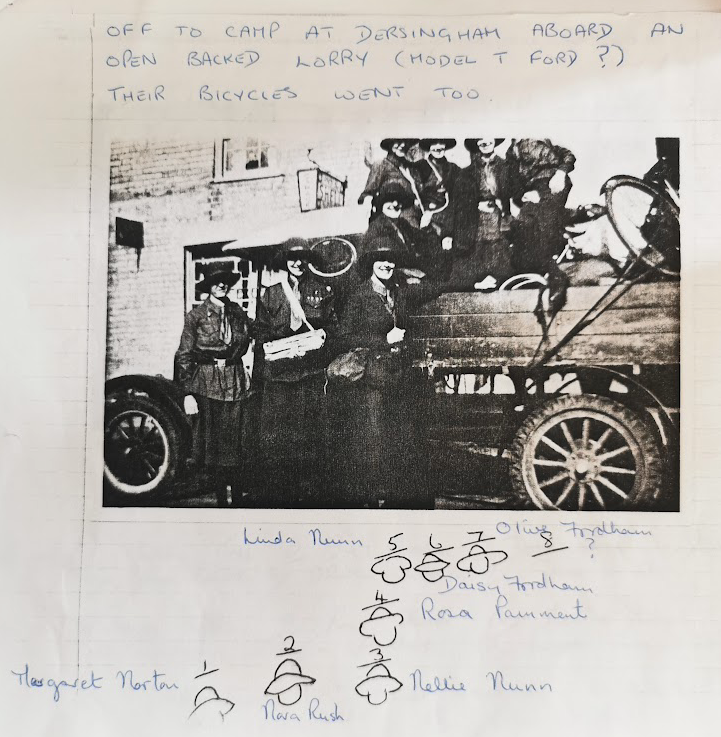 OFF TO CAMP AT DERSINGHAM ABOARD AN
OPEN BACKED LORRY (MODEL T FORD ?)
THEIR BICYCLES WENT TOO.
Linda Nunn 5 6 7 Olive Fordham 8 ?
Daisy Fordham
4 Rosa Pamment
Margaret Norton 1 2 3 Nellie Nunn
Nora Rush